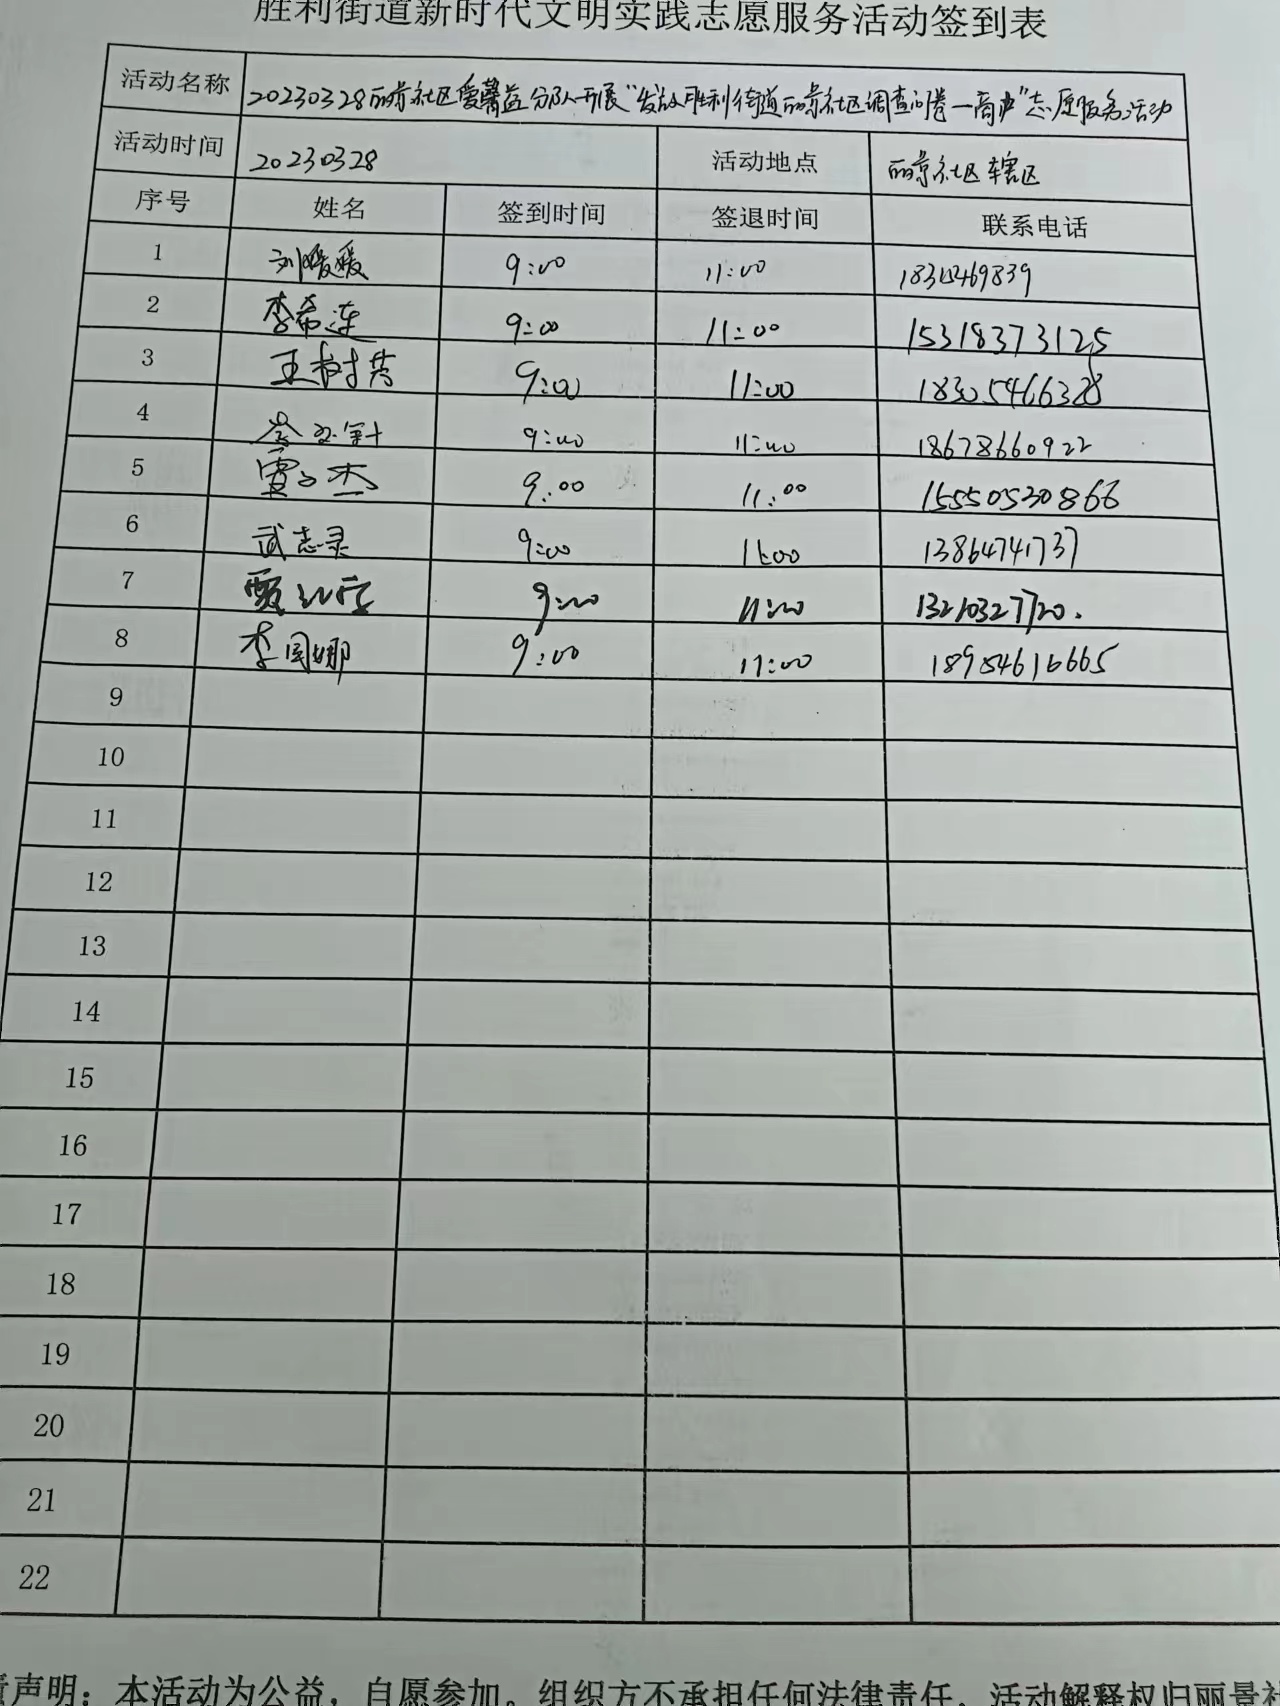 胜利街道新时代文明实践志愿服务活动签到表
活动名称 20230328丽景社区爱馨益分队开展"发放胜利街道丽景社区调查问卷—商户"志愿服务活动
活动时间 20230328 活动地点 丽景社区辖区
序号 姓名 签到时间 签退时间 联系电话
1 刘媛媛 9:00 11:00
2 李希连 9:00 11:00 15318373125
3 王树芳 9:00 11:00 18305466328
4 9:00 11:00 18678660922
5 9:00 11:00 15550530866
6 武志录 9:00 11:00 13864741737
7 9:00 11:00 13210327720.
8 李国娜 9:00 11:00 18954616665
9
10
11
12
13
14
15
16
17
18
19
20
21
22
责声明：本活动为公益，自愿参加。组织方不承担任何法律责任，活动解释权归丽景社